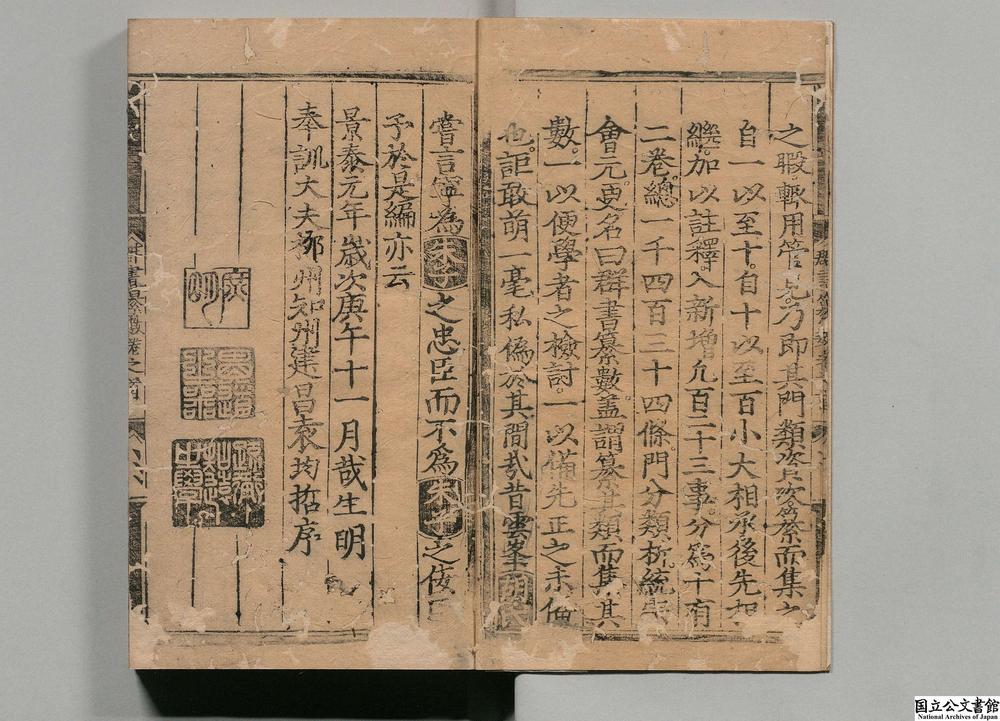 之暇輙用管見乃即其門類資次纂而集之
自一以至十自十以至百小大相承後先相
繼加以註釋入新增凢百二十三事分爲十有
二卷總一千四百三十四條門分類析統宗
會元更名曰群書纂數蓋謂纂其類而集其
數一以便學者之檢討一以備先正之未備
也詎敢萌一毫私僞於其間哉昔雲峯胡氏
嘗言寧為朱子之忠臣而不為朱子之佞臣
予於是編亦云
景泰元年歲次庚午十一月哉生明
奉訓大夫郴州知州建昌袁均哲序
國立公文書館
National Archives of Japan